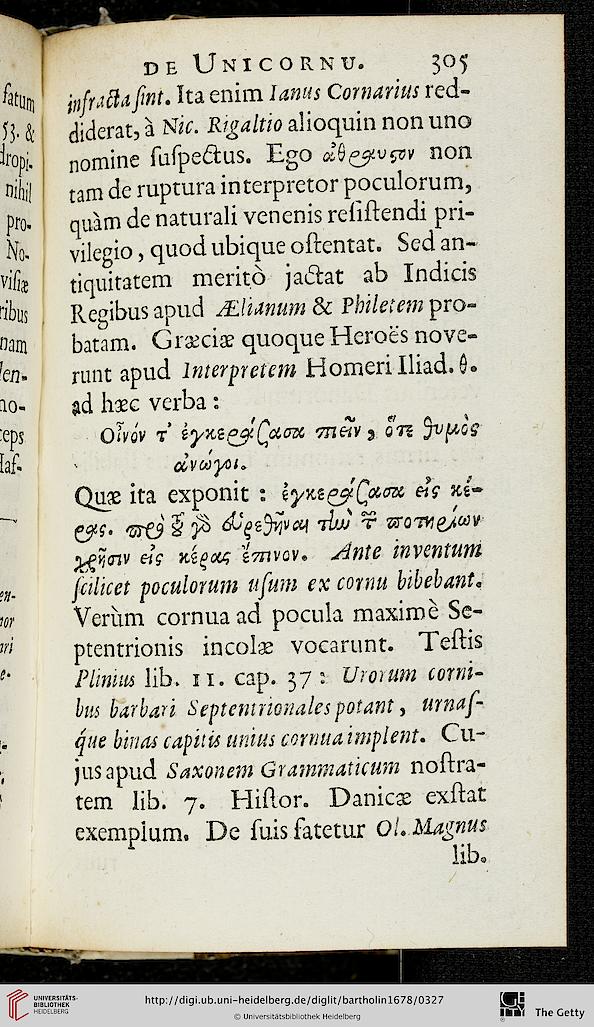 DE UNICORNU. 305
infracta sint. Ita enim Ianus Cornarius red-
diderat, à Nic. Rigaltio alioquin non uno
nomine suspectus. Ego ἄθραυστον non
tam de ruptura interpretor poculorum,
quàm de naturali venenis resistendi pri-
vilegio, quod ubique ostentat. Sed an-
tiquitatem meritò jactat ab Indicis
Regibus apud Ælianum & Philetem pro-
batam. Græciæ quoque Heroës nove-
runt apud Interpretem Homeri Iliad. θ.
ad hæc verba:
Οἶνόν τ' ἐγκεράσασα πιεῖν, ὅτε θυμὸς
ἀνώγοι.
Quæ ita exponit: ἐγκεράσασα εἰς κέ-
ρας. πρὸ τοῦ γὰρ εὑρεθῆναι τὴν τῶν ποτηρίων
χρῆσιν εἰς κέρας ἔπινον. Ante inventum
scilicet poculorum usum ex cornu bibebant.
Verùm cornua ad pocula maximè Se-
ptentrionis incolæ vocarunt. Testis
Plinius lib. 11. cap. 37: Urorum corni-
bus barbari Septentrionales potant, urnas-
que binas capitis unius cornua implent. Cu-
jus apud Saxonem Grammaticum nostra-
tem lib. 7. Histor. Danicæ exstat
exemplum. De suis fatetur Ol. Magnus
lib.
fatum
53. &
dropi-
nihil
pro-
No-
visiæ
ribus
nam
len-
no-
ceps
Haf-
en-
ior
iri
e-
UNIVERSITÄTS-
BIBLIOTHEK
HEIDELBERG
http://digi.ub.uni-heidelberg.de/diglit/bartholin1678/0327
© Universitätsbibliothek Heidelberg
The Getty